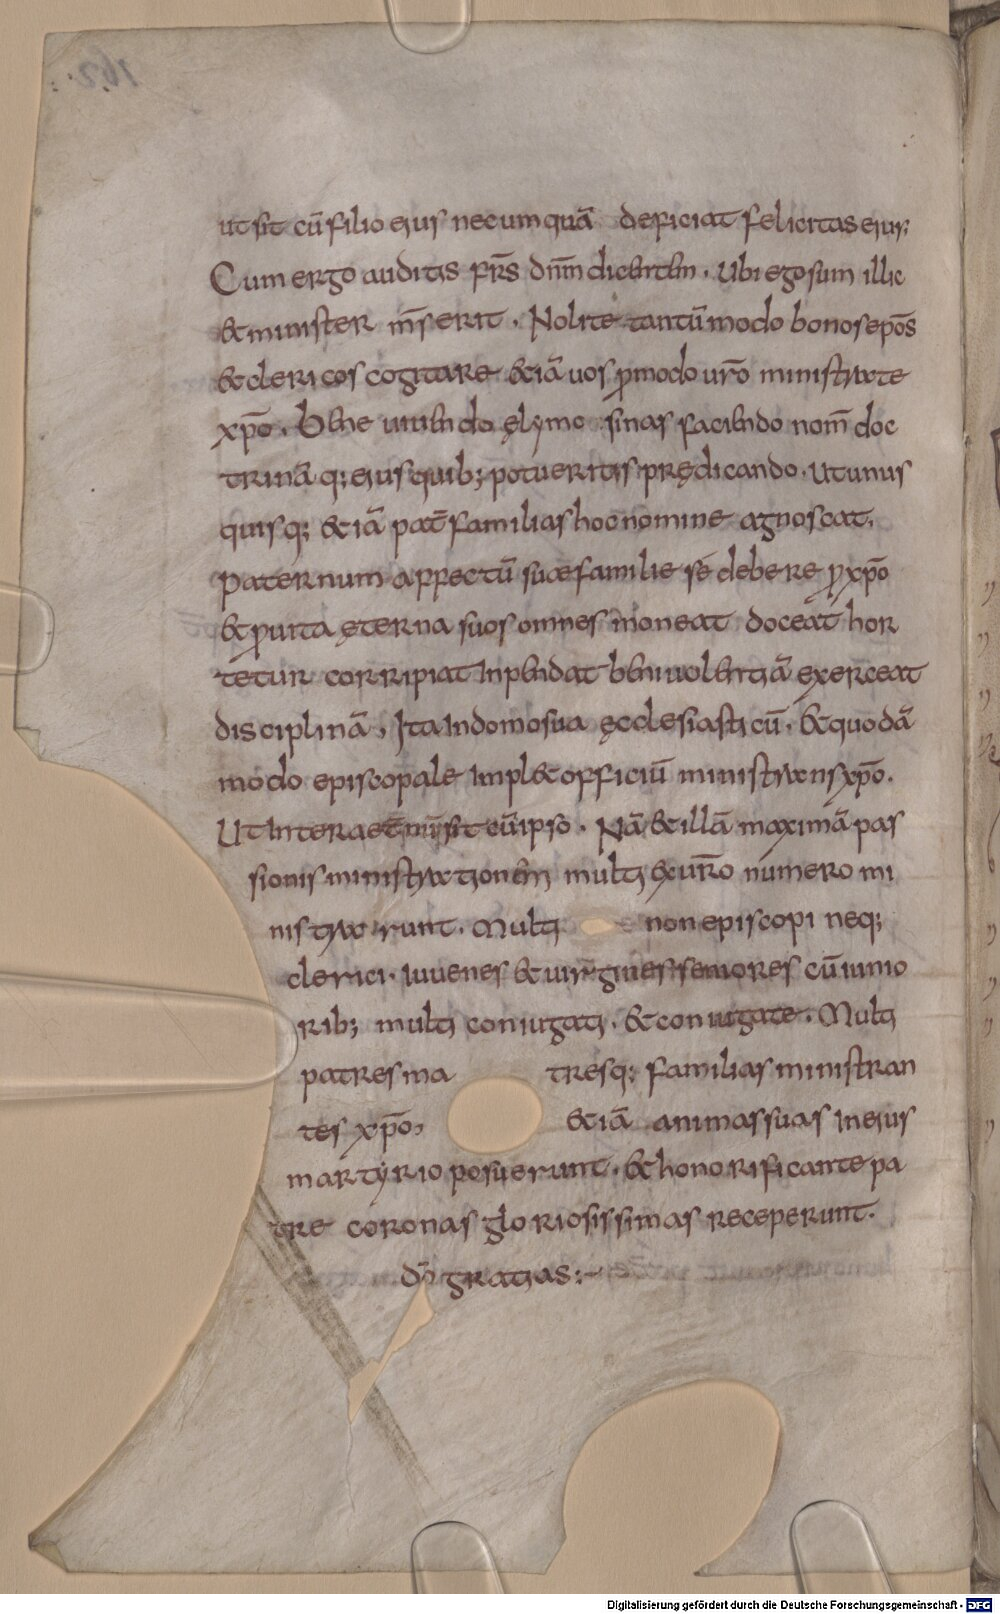 ut sit cū filio eius nec umquā deficiat felicitas eius;
Cum ergo auditis frs̄ dnm̄ dicentem. Ubi ego sum illic
& minister ms̄ erit. Nolite tantūmodo bonos ep̄os
& clericos cogitare &iā uos p̱ modo ur̄o ministrate
xp̄o. Bene uiuendo ęlymosinas faciendo nom̄ doc
trinā q; eius quib; potueritis prędicando. Ut unus
quisq; &iā pat̄ familias hoc nomine agnoscat.
Paternum affectū suae familie se debere p̱ xp̄o
& p̱ uita ęterna suos omnes moneat doceat hor
tetur corripiat Inpendat beniuolentiā exerceat
disciplinā, Ita In domo sua ęcclesiasticū. & quodā
modo episcopale Impl& officiū ministrans xp̄o.
Ut In teraet̄nū sit cū ipso. Nā & illā maximā pas
sionis ministrationem̄ multi ex ur̄o numero mi
nistrarunt. Multi non episcopi neq;
clerici. iuuenes & uirgines seniores cū iunio
rib; multi coniugati. & coniugate. Multi
patres matresq; familias ministran
tes xp̄o, &iā animas suas In eius
martyrio posuerunt. & honorificante pa
tre coronas gloriosissimas receperunt.
dō gratias:~
162.
Digitalisierung gefördert durch die Deutsche Forschungsgemeinschaft - DFG